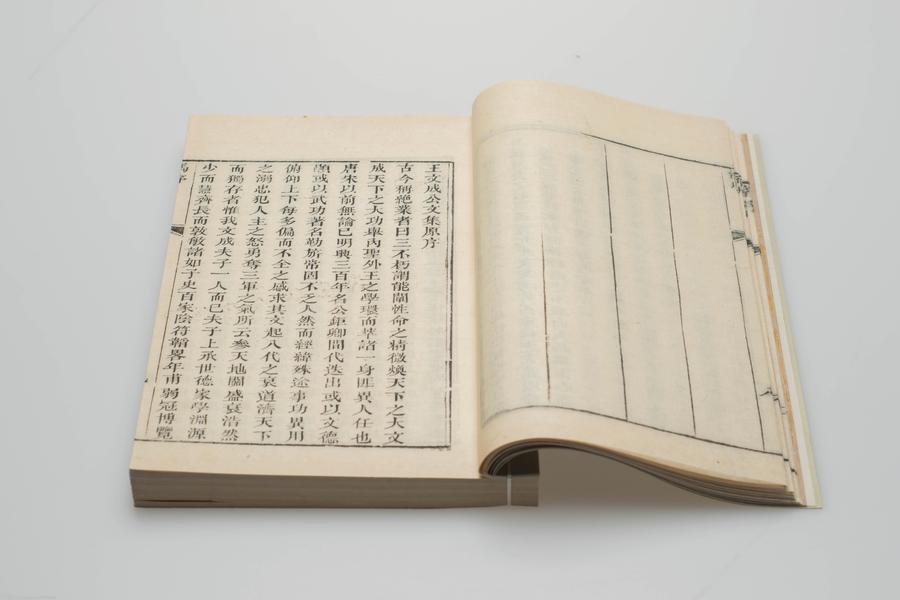 王文成公文集原序
古今稱絕業者曰三不朽謂能闡性命之精微煥天下之大文
成天下之大功舉內聖外王之學環而萃諸一身匪異人任也
唐宋以前無論已明興三百年名公鉅卿間代迭出或以文德
顯或以武功著名勒旂常固不乏人然而經緯殊途事功異用
俯仰上下每多偏而不全之感求其文起八代之衰道濟天下
之溺忠犯人主之怒勇奪三軍之氣所云參天地關盛衰浩然
而獨存者惟我文成夫子一人而已夫子上承世德家學淵源
少而慧齊長而敦敏諸如子史百家陰符韜畧年甫弱冠博覽